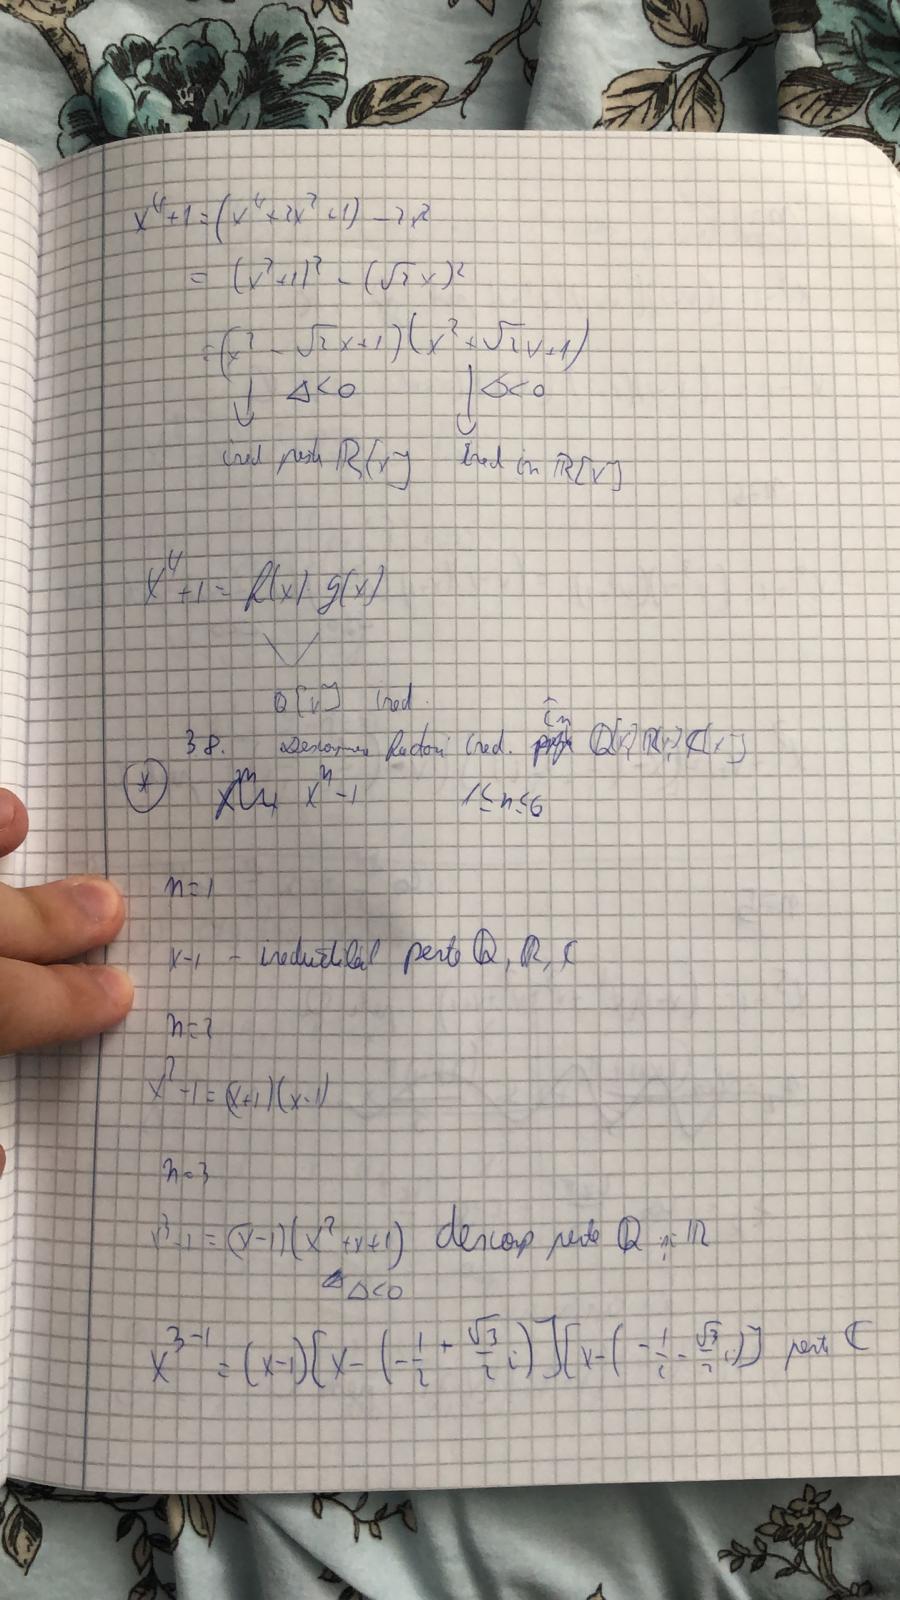 x⁴+1=(x⁴+2x²+1)-2x²
= (x²+1)² - (√2 x)²
=(x² - √2x+1)(x²+√2x+1)
↓ Δ<0 ↓ Δ<0
ired peste ℝ[x] ired in ℝ[x]
x⁴+1= f(x) g(x)
Q[x] ired.
38. factori ired. în Q[x] ℝ[x] ℂ[x]
* xⁿ-1 1≤n≤6
n=1
x-1 - ireductibil peste Q, ℝ, ℂ
n=2
x²-1=(x+1)(x-1)
n=3
x³-1=(x-1)(x²+x+1) descomp peste Q și ℝ
Δ<0
x³⁻¹=(x-1)[x-(-1/2+√3/2 i)][x-(-1/2-√3/2 i)] peste ℂ